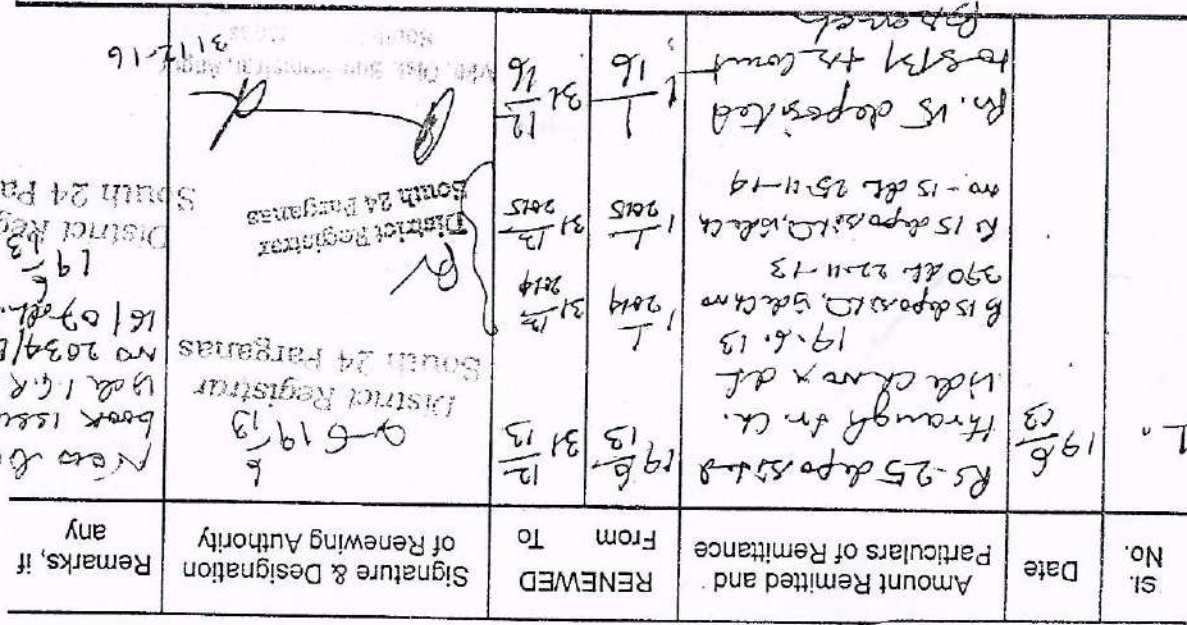 Sl. No.
Date
Amount Remitted and Particulars of Remittance
RENEWED
From
To
Signature & Designation of Renewing Authority
Remarks, if any
1.
19 6/13
Rs-25 deposited
through tr. ch.
vide ch no x dt
19.6.13
19 6/13
31 12/13
19 6/13
District Registrar
South 24 Parganas
New
book
vide I.G.R
No 2034/
16/07
19 6/13
District Reg
South 24 Pa
Rs 15 deposited, vide Ch no
390 dt 22-11-13
1 1/2014
31 12/2014
Rs 15 deposited, vide Ch
no - 15 dt 25-11-14
1 1/2015
31 12/2015
District Registrar
South 24 Parganas
Rs. 15 deposited
to SBI
Branch
1 1/16
31 12/16
31 12-16